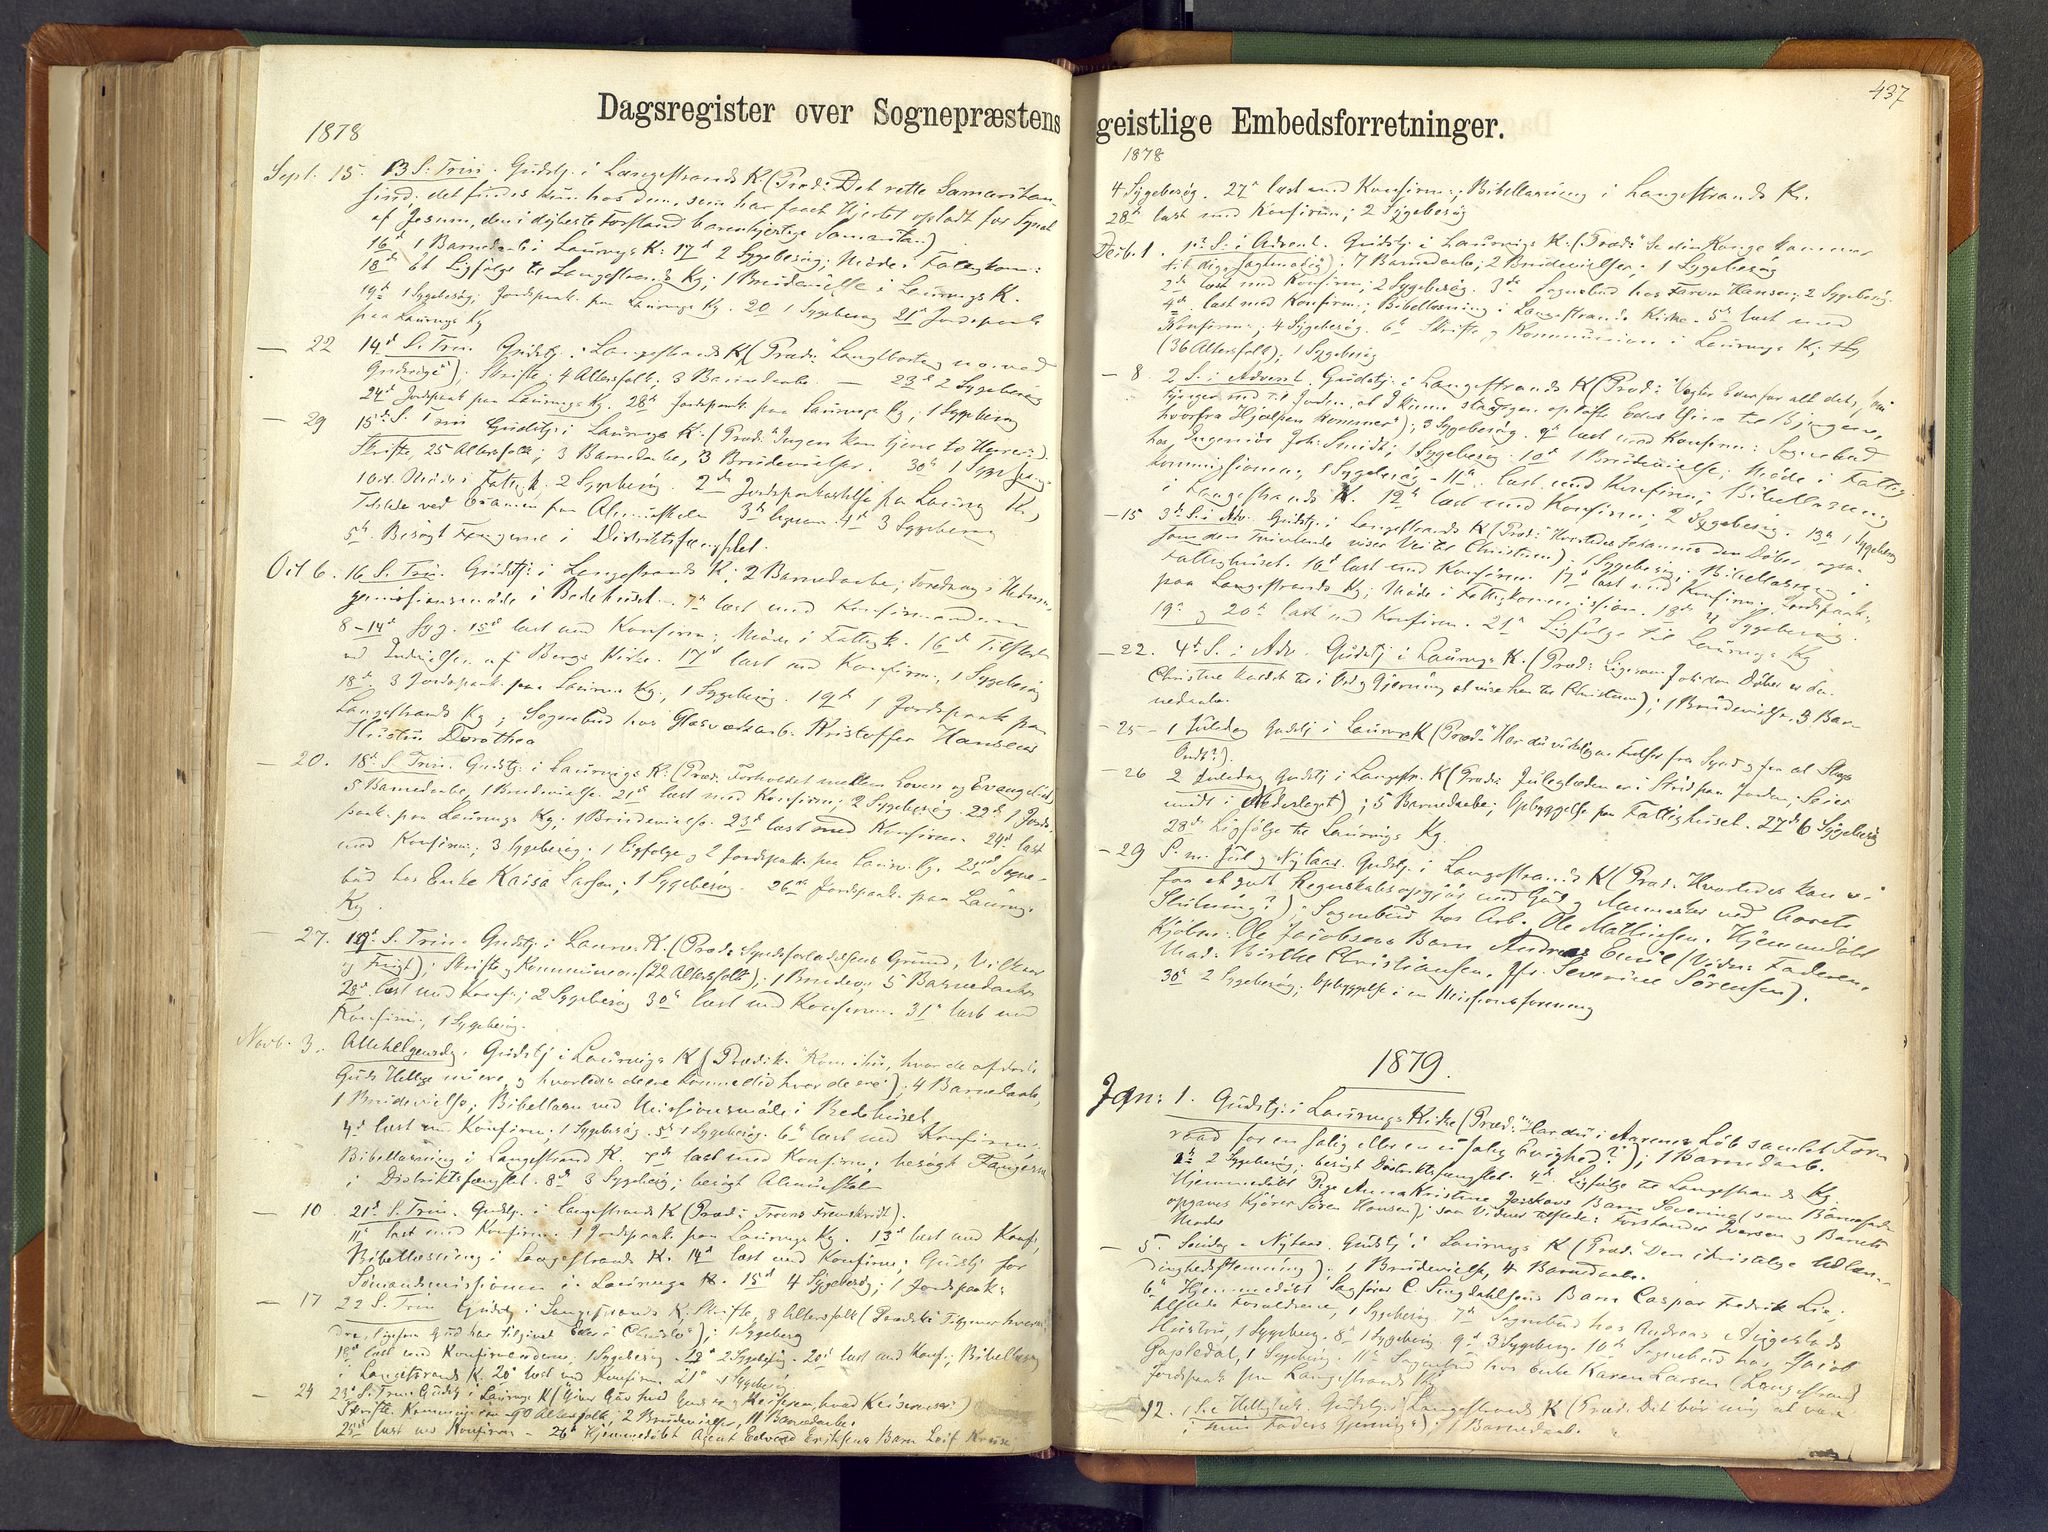 Dagsregister over Sognepræstens
1878
Sept. 15. 13 S. Trin. Gudstj. i Langestrands K. (Præd: Det rette Samaritan-
sind: det findes kun hos dem, som har faaet Hjertet opladt for Synet
af Jesum, den i dybeste Forstand barmhjertige Samaritan)
16d 1 Barnedaab i Laurvigs K. 17d 2 Sygebesøg; Møde i Fattigkom:
18de Ligfølge til Langestrands Kg; 1 Brudevielse i Laurvigs K.
19d 1 Sygebesøg; Jordspaak. paa Laurvigs Kg. 20 1 Sygebesøg 21d Jordspaak
paa Laurvigs Kg
— 22 14d S. Trin. Gudstj. i Langestrands K (Præd:
Skrifte; 4 Altersfolk; 3 Barnedaabe. — 23d 2 Sygebesøg
24d Jordspaak paa Laurvigs Kg. 28d Jordspaak. paa Laurvigs Kg; 1 Sygebesøg
— 29 15de S. Trin Gudstj. i Laurvigs K. (Præd: "Ingen kan tjene to Herrer")
Skrifte, 25 Altersfolk; 3 Barnedaabe, 3 Brudevielser. 30d 1 Sygebesøg
1 Oct Møde i Fattigk. 2 Sygebesøg. 2de Jordspaakastelse paa Laurvig K.,
Tilstede ved Examen paa Almueskolen 3de 4d 3 Sygebesøg
5d. Besøgt Fangerne i Distriktsfængslet.
Oct 6. 16 S. Trin. Gudstj. i Langestrands K; 2 Barnedaabe; Foredrag i Hedninge-
missionsmøde i Bedehuset. 7d læst med Konfirmanderne
8-14d syg. 15d læst med Konfirm; Møde i Fattigk. 16d Tilstede
ved Indvielsen af Bergs Kirke. 17d læst med Konfirm., 1 Sygebesøg
18d. 3 Jordspaak. paa Laurv. Kg., 1 Sygebesøg. 19d 1 Jordspaak paa
Langestrands Kg; Sognebud hos Glasværksarb. Kristoffer Hansens
Hustru Dorothea
— 20. 18d. S. Trin. Gudstj. i Laurvigs K. (Præd. Forholdet mellem Loven og Evangeliet)
5 Barnedaabe, 1 Brudevielse. 21d læst med Konfirm; 2 Sygebesøg. 22d 1 Jords-
paak. paa Laurvigs Kg; 1 Brudevielse. 23d læst med Konfirm. 24d læst
med Konfirm.; 3 Sygebesøg. 1 Ligfølge og 2 Jordspaak. paa Laurv. Kg. 25d Sogne-
bud hos Enke Kaisa Larsen; 1 Sygebesøg. 26d Jordspaak. paa Laurvigs
Kg.
— 27. 19d. S. Trin. Gudstj. i Laurv. K. (Præd. Syndsforladelsens Grund, Vilkaar
og Frugt); Skrifte og Kommunion (22 Altersfolk); 1 Brudev; 5 Barnedaabe
28d læst med Konf.; 2 Sygebesøg 30d læst med Konfirm. 31d læst med
Konfirm., 1 Sygebesøg.
Novb. 3. Allehelgensdg. Gudstj i Laurvigs K (Prædik. "Kom ihu, hvor de afdøde
Guds Hellige nu ere, og hvorledes de ere kommet did hvor de ere"); 4 Barnedaab,
1 Brudevielse; Bibellæsn. ved Missionsmøde i Bedehuset
4d læst med Konfirm; 1 Sygebesøg. 5d 1 Sygebesøg. 6d læst med Konfirm.
Bibellæsning i Langestrand K. 7d læst med Konfirm; besøgt Fangerne
i Distriktsfængslet. 8d 3 Sygebesøg; besøgt Almueskolen
— 10. 21d S. Trin. Gudstj. i Langestrands K (Præd: Troens Fremskridt).
11d læst med Konfirm. 1 Jordspaak. paa Laurvigs Kg. 13d læst med Konf.,
Bibellæsning i Langestrands K. 14d læst med Konfirm; Gudstj for
Sømandsmissionen i Laurvigs K. 15d 4 Sygebesøg; 1 Jordspaak:
— 17 22 S. Trin Gudstj. i Langestrands K, Skrifte, 8 Altersfolk (Prædik: Tilgiver hveran-
dre, ligesom Gud har tilgivet Eder i Christo"); 1 Sygebesøg
18d læst med Konfirmanderne; 1 Sygebesøg. 19d 2 Sygebesøg. 20d læst med Konf; Bibellæsng
i Langestrands K. 20d læst med Konfirm. 21d 1 Sygebesøg
— 24 23d S. Trin. Gudstj i Laurvigs K ("Giver Gud hvad Guds er og Keiseren, hvad Keiserens er")
Skrifte. Kommunion 90 Altersfolk; 2 Brudevielser, 11 Barnedaabe.
25d læst med Konfirm — 26d Hjemmedøbt Agent Edvard Eriksens Barn Leif Kruse
437
geistlige Embedsforretninger.
1878
4 Sygebesøg. 27d læst med Konfirm.; Bibellæsning i Langestrands K.
28d læst med Konfirm; 2 Sygebesøg
Decb. 1. 1ste S. i Advent. Gudstj i Laurvigs K. (Præd: "Se din Konge kommer
til dig, sagtmodig); 7 Barnedaabe; 2 Brudevielser; 1 Sygebesøg
2d læst med Konfirm; 2 Sygebesøg. 3de Sognebud hos Hansen; 2 Sygebesøg.
4d. læst med Konfirm.; Bibellæsning i Langestrands Kirke. 5d læst med
Konfirm.; 4 Sygebesøg. 6d Skrifte og Kommunion i Laurvigs K;
(36 Altersfolk); 1 Sygebesøg
— 8. 2 S. i Advent. Gudstj. i Langestrands K (Præd: "Vogter Eder for alt det, som
tynger ned til Jorden, at I kunne opløfte Eders Øine til Bjergene,
hvorfra Hjælpen kommer"); 3 Sygebesøg. 9d læst med Konfirm: Sognebud
hos Ingeniør Joh: Smidt; 1 Sygebesøg. 10d 1 Brudevielse; Møde i Fattig-
kommissionen, 1 Sygebesøg. 11d læst med Konfirm; Bibellæsning
i Langestrands K. 12d læst med Konfirm; 2 Sygebesøg. 13d 1 Sygebesøg
— 15 3d. S. i Adv. Gudstj i Langestrands K (Præd: Hvorledes Johannes den Døber, ogsaa
som den Tvivlende viser Vei til Christum); 1 Sygebesøg; Bibellæsng i
Fattighuset. 16d læst med Konfirm. 17d læst med Konfirm. Jordspaak.
paa Langestrands Kg; Møde i Fattigkommission. 18d 4 Sygebesøg.
19d og 20d læst med Konfirm. 21d Ligfølge til Laurvigs Kg
— 22. 4d. S. i Adv. Gudstj i Laurvigs K. (Præd: Ligesom Joh. den Døber er den
Christne kaldet til i Ord og Gjerning at vise hen til Christum); 1 Brudevielse. 3 Bar-
nedaabe.
— 25 — 1 Juledag Gudstj i Laurvigs K (Præd: "Har du virkelig en Frelser fra Synd og fra al Slags
Ondt?").
— 26 2 Juledag Gudstj i Langestr. K (Præd: Juleglæden er i Strid paa Jorden; Seier
midt i Nederlaget); 5 Barnedaabe; Opbyggelse paa Fattighuset. 27de 6 Sygebesøg
28de Ligfølge til Laurvigs Kg.
— 29 S. m. Jul og Nytaar. Gudstj. i Langestrands K (Præd. Hvorledes kan vi
faa et godt Regnskabsopgjør med Gud og Mennesker ved Aarets
Slutning?); Sognebud hos Arb. Ole Mathiesen. Hjemmedøbt
Kjølm. Ole Jacobsens Barn Andreas Emil (Vidn: Faderen,
Mad. Birthe Christiansen, Jfr. Severine Sørensen).
30d 2 Sygebesøg; Opbyggelse i en Missionsforening
1879.
Jan: 1. Gudstj: i Laurvigs Kirke (Præd: "Har du i Aarenes Løb samlet Forn
raad for en salig eller en usalig Evighed?"); 1 Barnedaab.
2d 2 Sygebesøg; besøgt Distriktsfængslet. 4d. Ligfølge til Langestrands Kg.
Hjemmedøbt Pige Anna Kristine Jenssens Barn Severine (som Barnefader
opgaves Kjører Søren Hansen); som Vidner tilstede: Forstander Iversen og Barnets
Moder
— 5. Søndag e. Nytaar. Gudstj i Laurvigs K (Præd. Den christelige Udlæn-
dighedsstemning). 1 Brudevielse, 4 Barnedaabe.
6d Hjemmedøbt Sagfører C. Singdahlsens Barn Caspar Fredrik Lie,
tilstede Forældrene, 1 Sygebesøg 7de Sognebud hos Andreas Aggelstads
Hustru, 1 Sygebesøg. 8d 1 Sygebesøg 9d 3 Sygebesøg. 10d Sognebud hos Jacob
Gopledal, 1 Sygebesøg. 11d Sognebud hos Enke Karen Larsen (Langestrand)
Jordspaak paa Langestrands Kg
12. 1 S. e Hellig 3K. Gudstj i Langestrands K (Præd: Det bør mig at være
i min Faders Gjerning"); 1 Barnedaab.